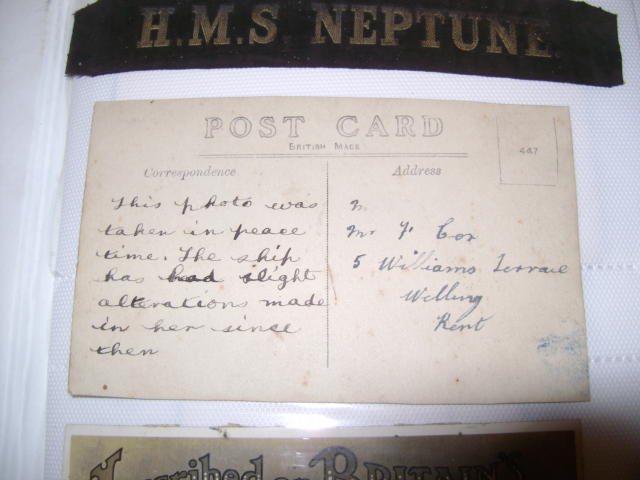 H.M.S. NEPTUNE.
POST CARD
BRITISH MADE
Correspondence
Address
447
This photo was
taken in peace
time. The ship
has had slight
alterations made
in her since
then
Mr Cox
5 Williams Terrace
Welling
Kent
Inscribed on BRITAIN'S